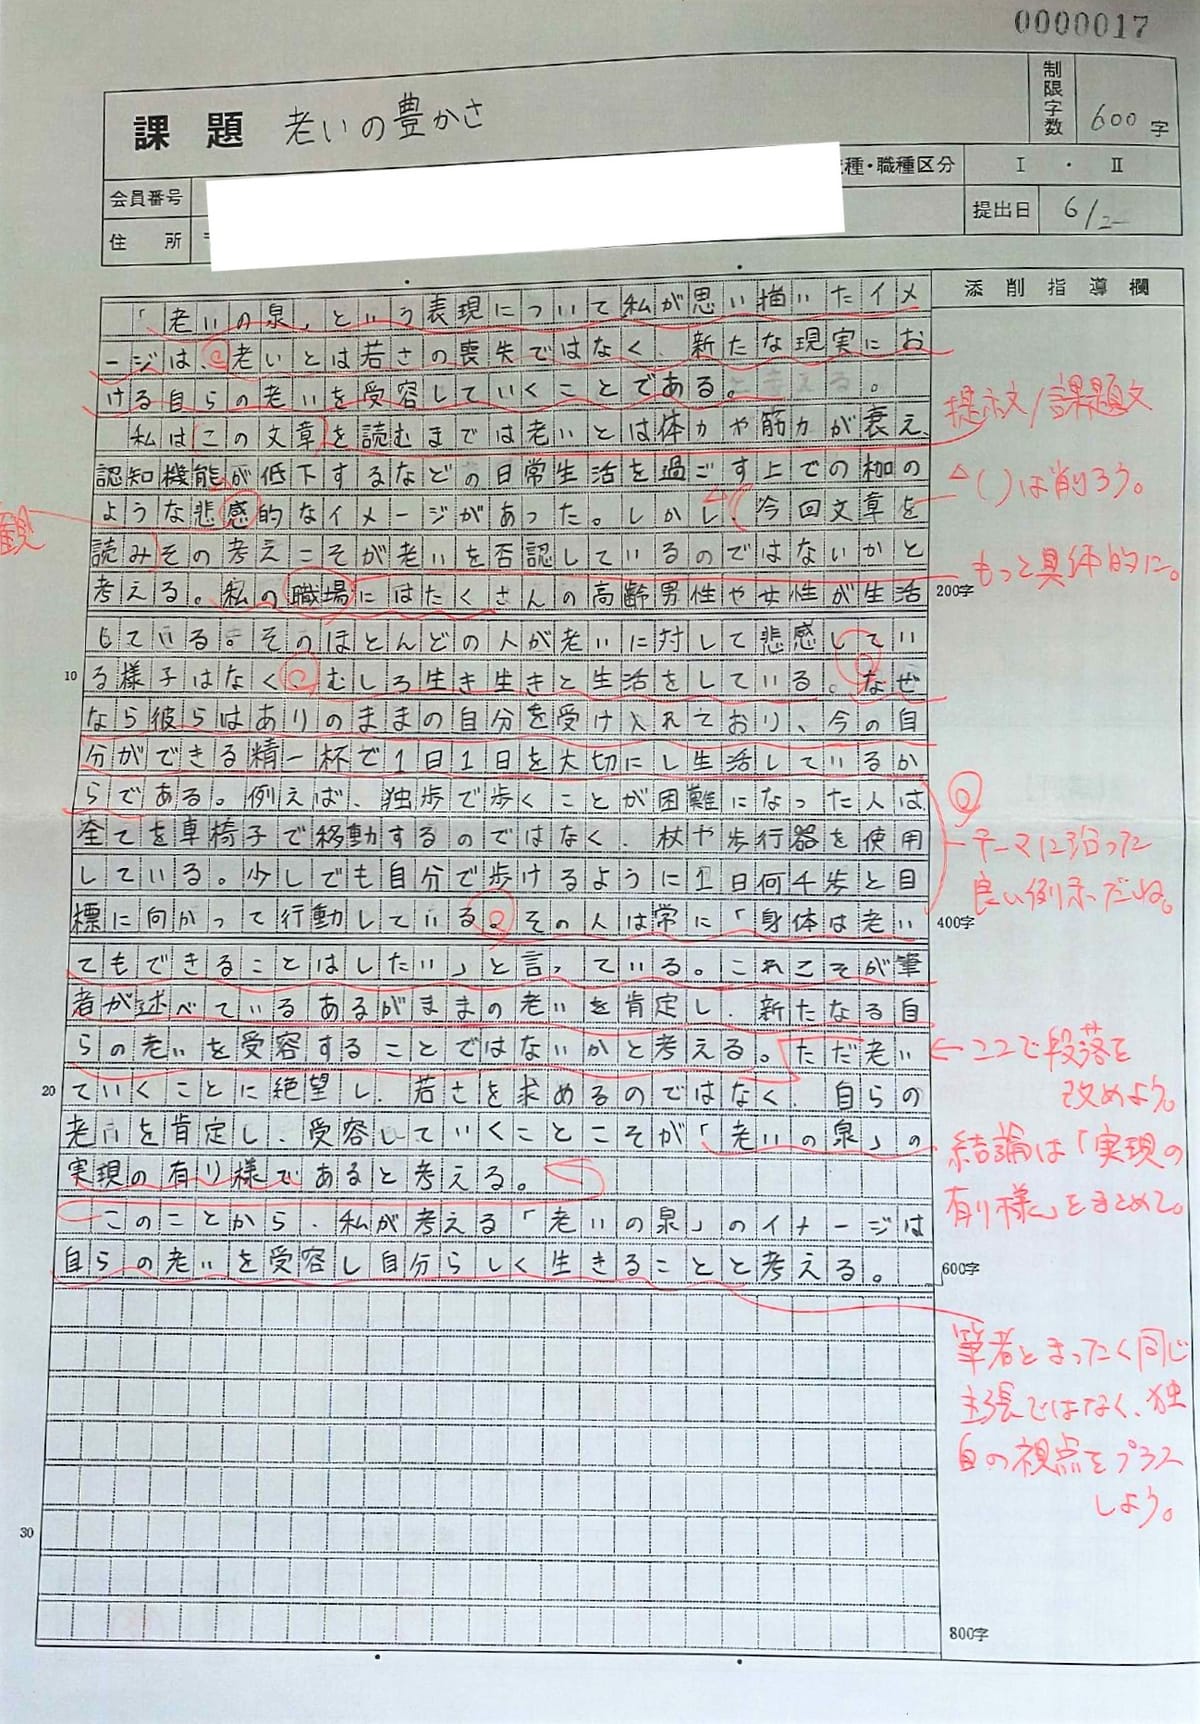 0000017
課題 老いの豊かさ
制限字数 600字
種・職種区分 Ⅰ・Ⅱ
会員番号
提出日 6/2
住所 〒
添削指導欄
「老いの泉」という表現について私が思い描いたイメ
ージは、老いとは若さの喪失ではなく、新たな現実にお
ける自らの老いを受容していくことである。
私はこの文章を読むまでは老いとは体力や筋力が衰え、
認知機能が低下するなどの日常生活を過ごす上での枷の
ような悲感的なイメージがあった。しかし今回文章を
読みその考えこそが老いを否認しているのではないかと
考える。私の職場にはたくさんの高齢男性や女性が生活
200字
している。そのほとんどの人が老いに対して悲感してい
10
る様子はなくむしろ生き生きと生活をしている。なぜ
なら彼らはありのままの自分を受け入れており、今の自
分ができる精一杯で1日1日を大切にし生活しているか
らである。例えば、独歩で歩くことが困難になった人は
全てを車椅子で移動するのではなく、杖や歩行器を使用
している。少しでも自分で歩けるように1日何千歩と目
標に向かって行動している。その人は常に「身体は老い
400字
てもできることはしたい」と言っている。これこそが筆
者が述べているあるがままの老いを肯定し、新たなる自
らの老いを受容することではないかと考える。ただ老い
20
ていくことに絶望し、若さを求めるのではなく、自らの
老いを肯定し、受容していくことこそが「老いの泉」の
実現の有り様であると考える。
このことから、私が考える「老いの泉」のイメージは
自らの老いを受容し自分らしく生きることと考える。
600字
30
800字
提示文/課題文
△( )は削ろう。
観
もっと具体的に。
テーマに沿った
良い例示だね。
←ここで段落を
改めよう。
結論は「実現の
有り様」をまとめて。
筆者とまったく同じ
主張ではなく、独
自の視点をプラス
しよう。